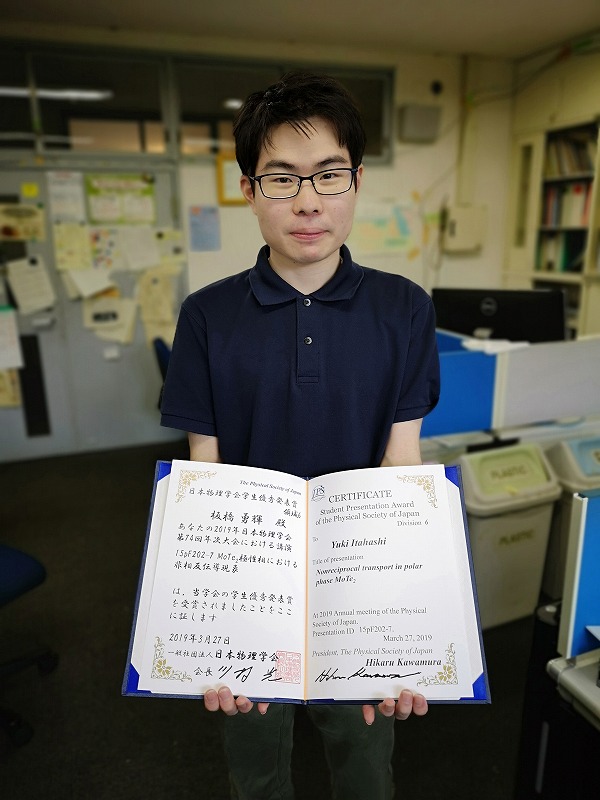 The Physical Society of Japan
日本物理学会学生優秀発表賞
領域6
板橋 勇輝 殿
あなたの2019年日本物理学会
第74回年次大会における講演
15pF202-7 MoTe₂極性相における
非相反伝導現象
は、当学会の学生優秀発表賞
を受賞されましたことをここ
に証します
2019年3月27日
一般社団法人日本物理学会
会長 川村 光
JPS
CERTIFICATE
Student Presentation Award
of the Physical Society of Japan
Division 6
To
Yuki Itahashi
Title of presentation
Nonreciprocal transport in polar
phase MoTe₂
At 2019 Annual meeting of the Physical
Society of Japan,
Presentation ID 15pF202-7,
March 27, 2019
President, The Physical Society of Japan
Hikaru Kawamura
Hikaru Kawamura
DELL
PLASTIC
PLASTIC